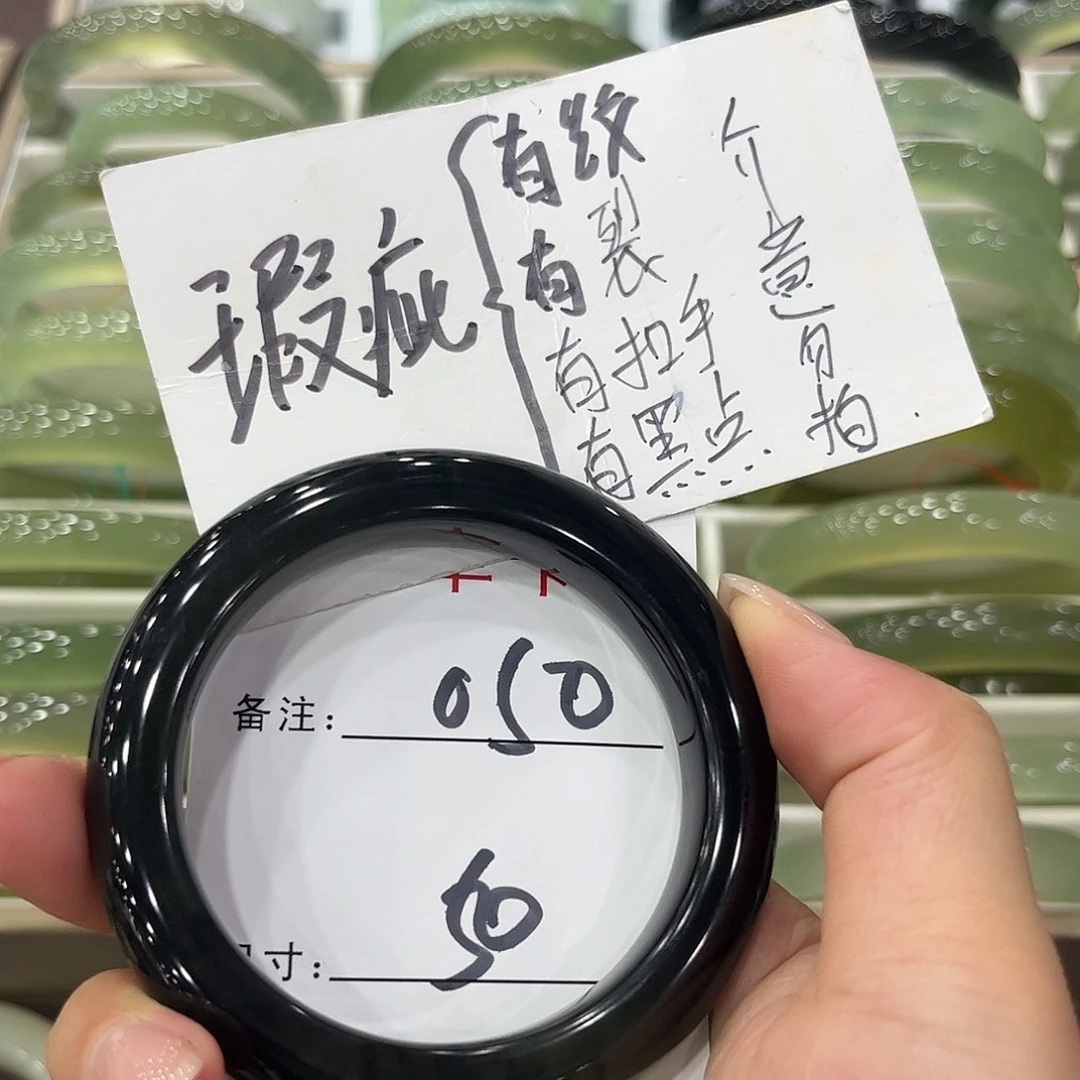 瑕疵
有纹
有裂
有扣手
有黑点
介意勿拍
备注: 050
寸: 50